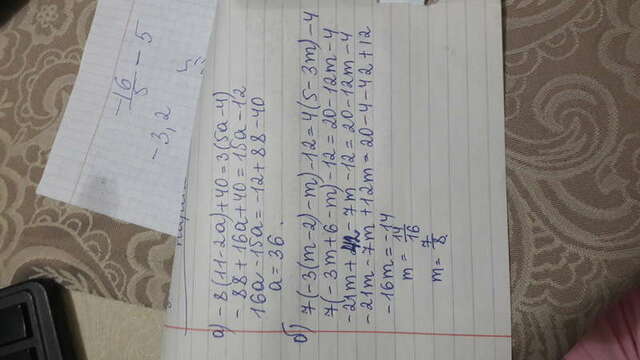 -16/5 - 5
-3,2
а) -8(11-2a)+40=3(5a-4)
-88+16a+40=15a-12
16a-15a=-12+88-40
a=36
б) 7(-3(m-2)-m)-12=4(5-3m)-4
7(-3m+6-m)-12=20-12m-4
-21m+42-7m-12=20-12m-4
-21m-7m+12m=20-4-42+12
-16m=-14
m=14/16
m=7/8